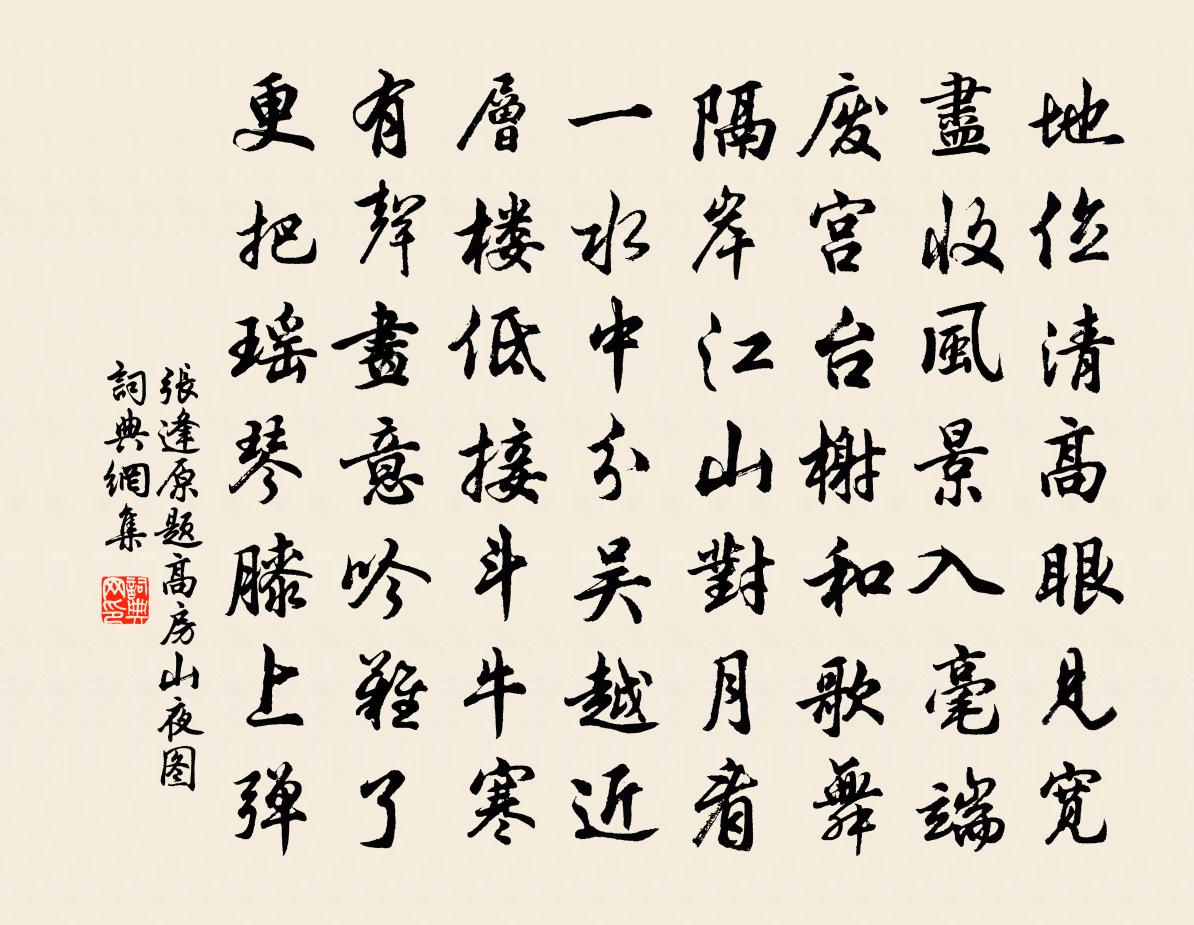 地位清高眼見宽
盡收風景入毫端
废宫台榭和歌舞
隔岸江山對月看
一水中分吴越近
層楼低接斗牛寒
有聲畫意吟難了
更把瑶琴膝上弹
張逢原题高房山夜图
詞典網集
詞典网印